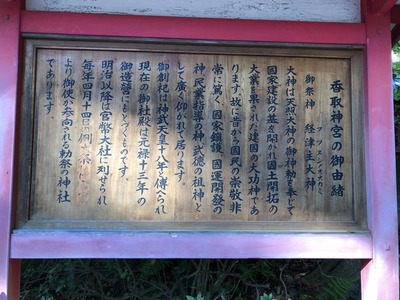 香取神宮の御由緒
御祭神　経津主大神
フツヌシノオオカミ
大神は天照大神の御神勅を奉じて
国家建設の基を開かれ国土開拓の
大業を果された建国の大功神であ
ります。故に昔から国民の崇敬非
常に篤く、国家鎮護、國運開發の
神、民業指導の神、武徳の祖神と
して廣く仰がれて居ります。
御創祀は神武天皇十八年と傳へられ
現在の御社殿は元禄十三年の
御造營にもとづくものです。
明治以降は官幣大社に列せられ
毎年四月十四日の例祭には
より御使が参向される勅祭の神社
であります。